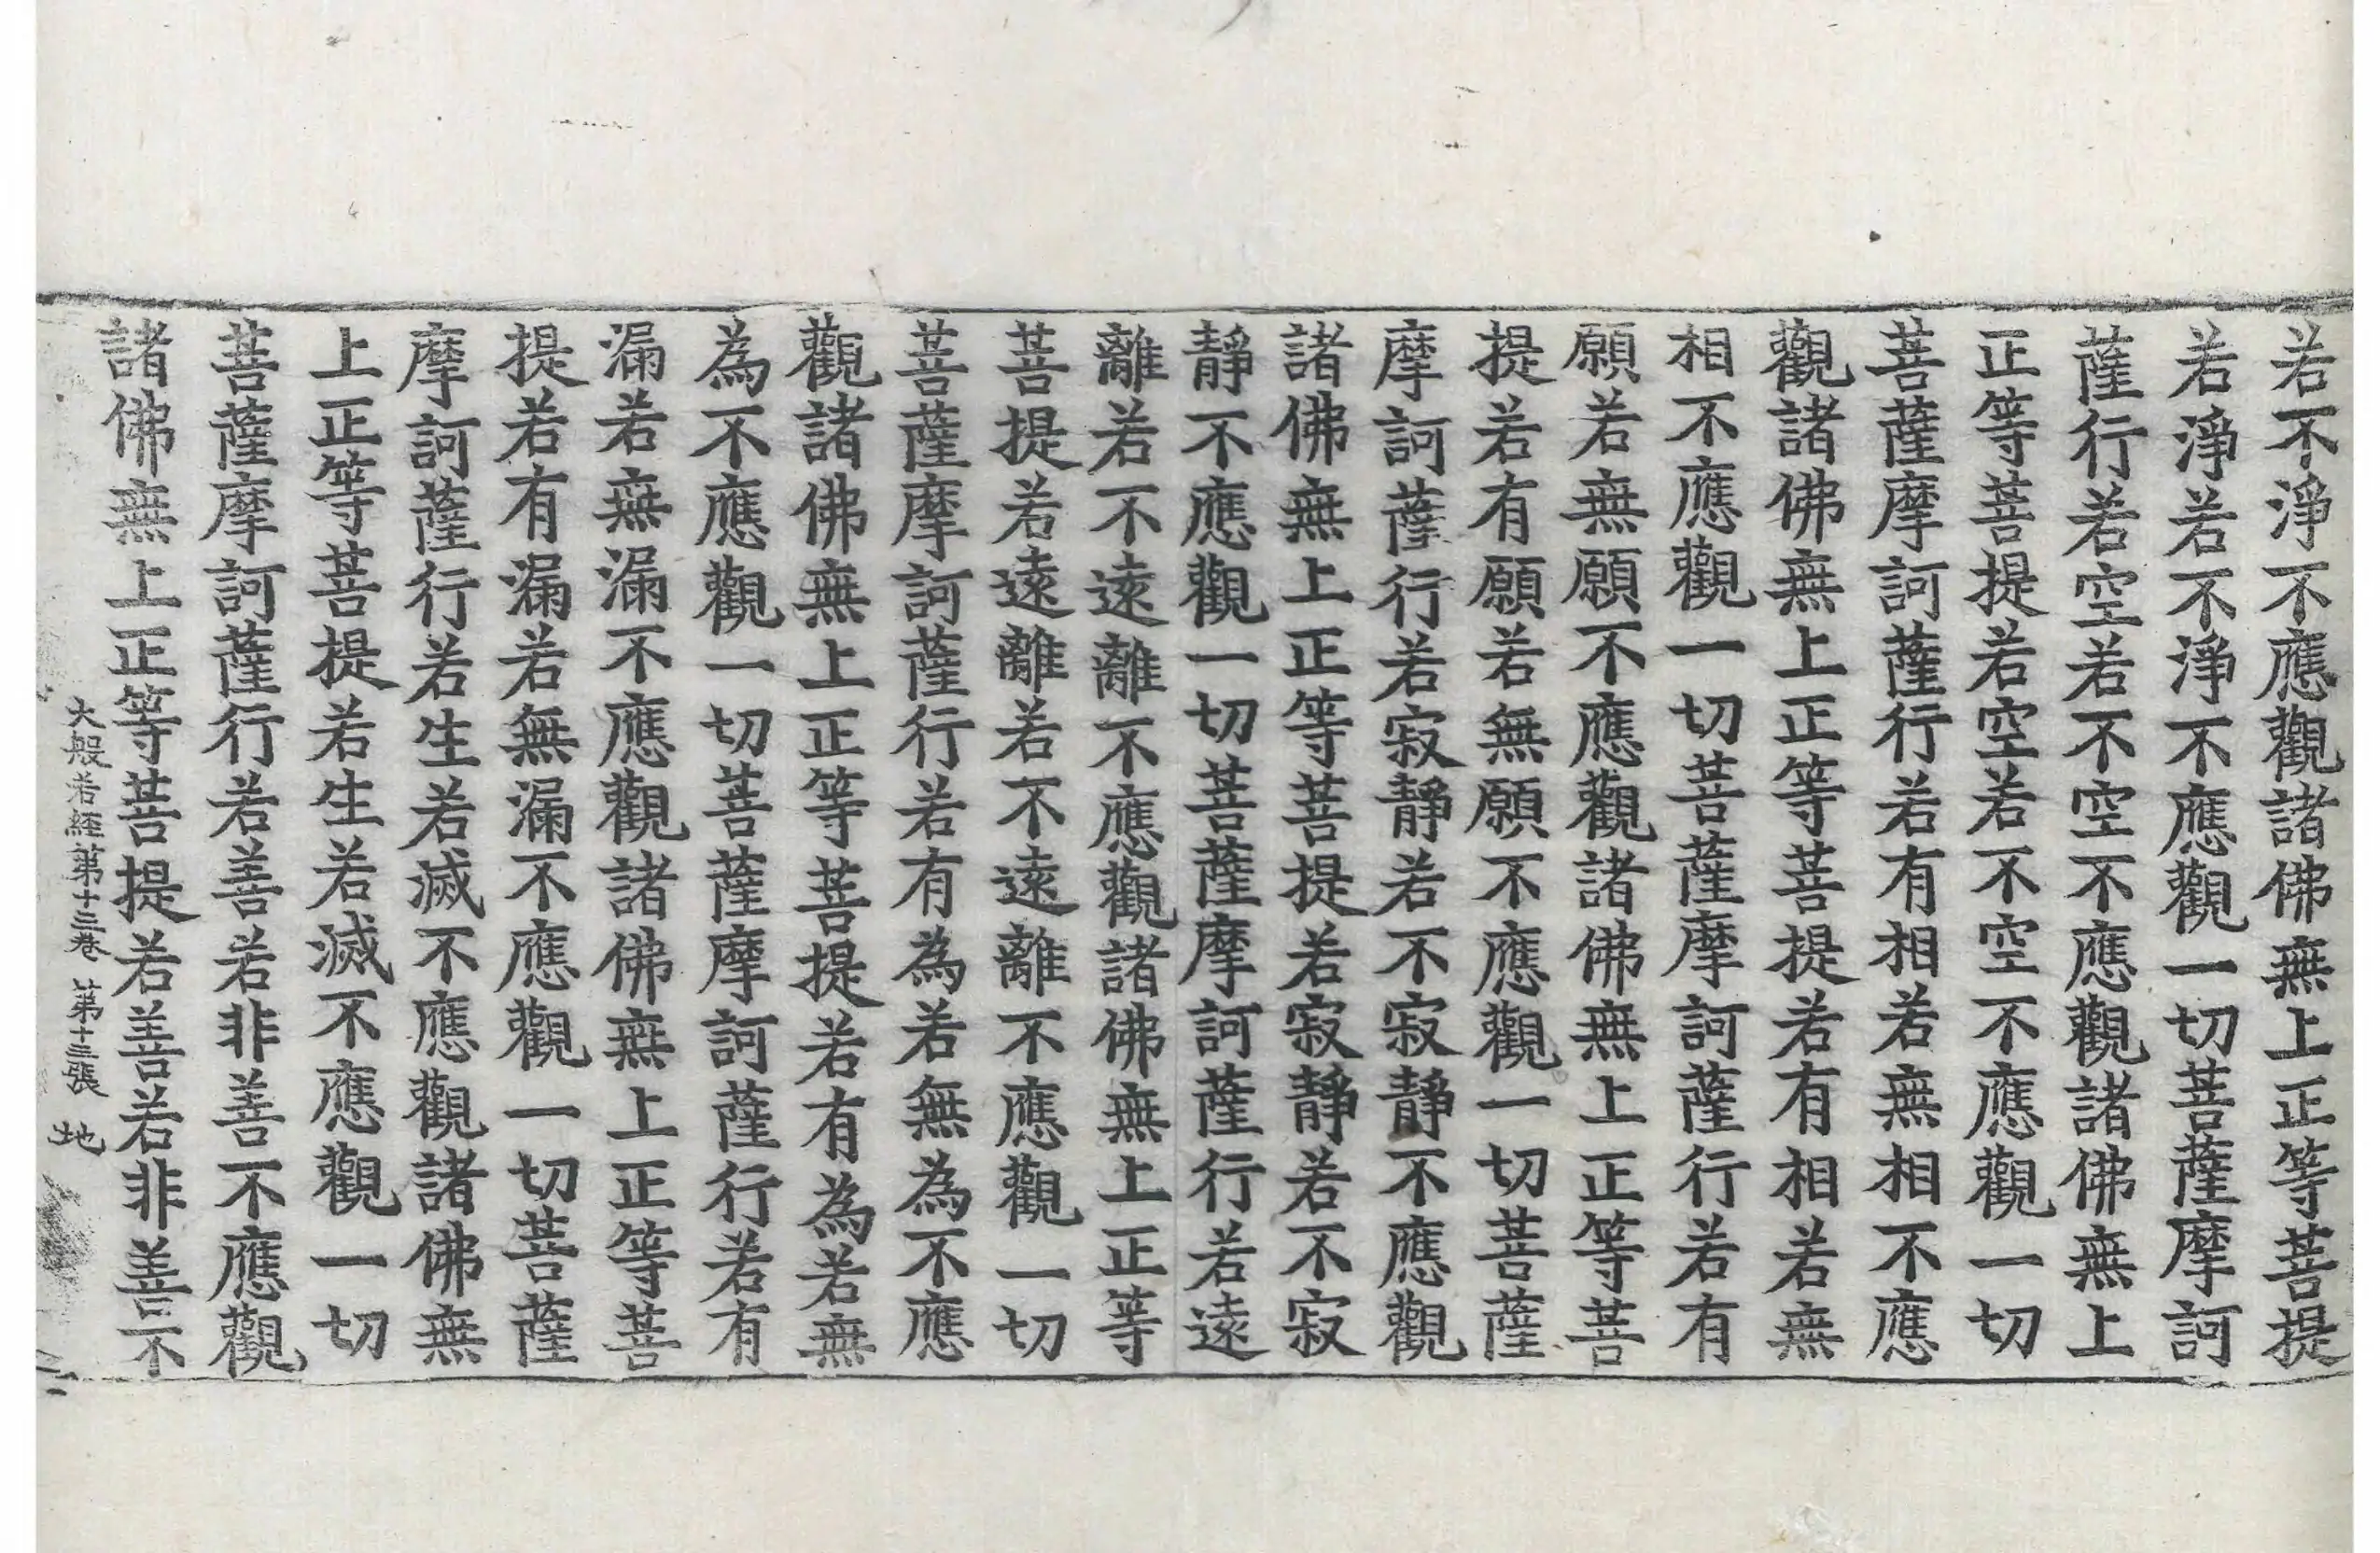 若不淨不應觀諸佛無上正等菩提
若淨若不淨不應觀一切菩薩摩訶
薩行若空若不空不應觀諸佛無上
正等菩提若空若不空不應觀一切
菩薩摩訶薩行若有相若無相不應
觀諸佛無上正等菩提若有相若無
相不應觀一切菩薩摩訶薩行若有
願若無願不應觀諸佛無上正等菩
提若有願若無願不應觀一切菩薩
摩訶薩行若寂靜若不寂靜不應觀
諸佛無上正等菩提若寂靜若不寂
靜不應觀一切菩薩摩訶薩行若遠
離若不遠離不應觀諸佛無上正等
菩提若遠離若不遠離不應觀一切
菩薩摩訶薩行若有為若無為不應
觀諸佛無上正等菩提若有為若無
為不應觀一切菩薩摩訶薩行若有
漏若無漏不應觀諸佛無上正等菩
提若有漏若無漏不應觀一切菩薩
摩訶薩行若生若滅不應觀諸佛無
上正等菩提若生若滅不應觀一切
菩薩摩訶薩行若善若非善不應觀
諸佛無上正等菩提若善若非善不
大般若經第十三卷 第十三張 地